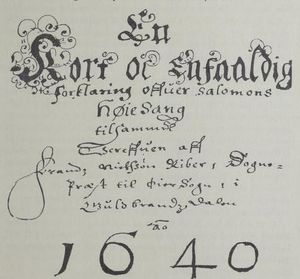 En
Kort oc Enfaaldig
forklaring offuer Salomons
Høie Sang
tilsammen
Screffuen aff
Frands Nielssøn Riber, Sogne-
Præst til Øier Sogn, i
Guldbrandz Dalen
Aõ
1640